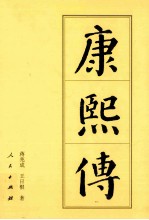 康
熙
傳
蒋兆成 王日根 著
人民出版社